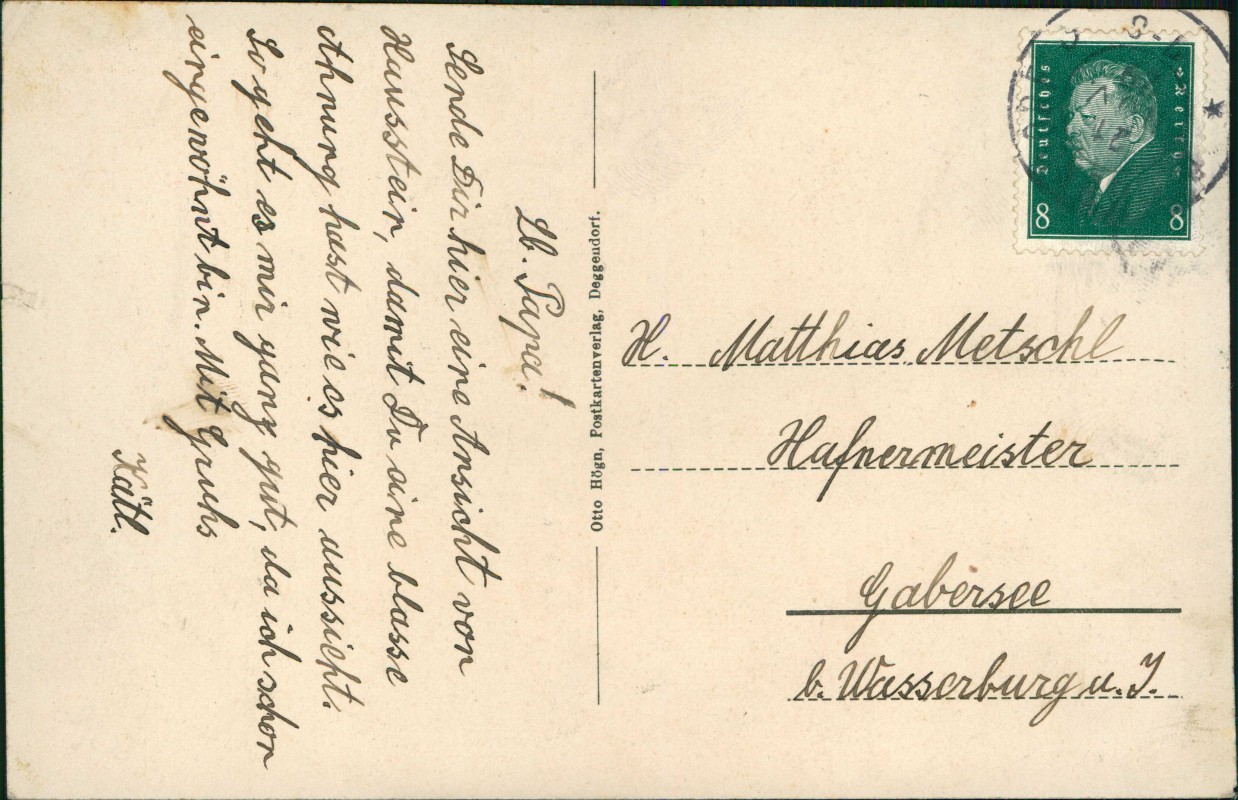 Lb. Papa!
Sende Dir hier eine Ansicht von
Hausstein, damit Du eine blasse
Ahnung hast wie es hier aussieht.
So geht es mir ganz gut, da ich schon
eingewöhnt bin. Mit Gruhs
Kätl.
Otto Högn, Postkartenverlag, Deggendorf.
Deutsches Reich
8 8
H. Matthias Metschl
Hafnermeister
Gabersee
b. Wasserburg a. I.